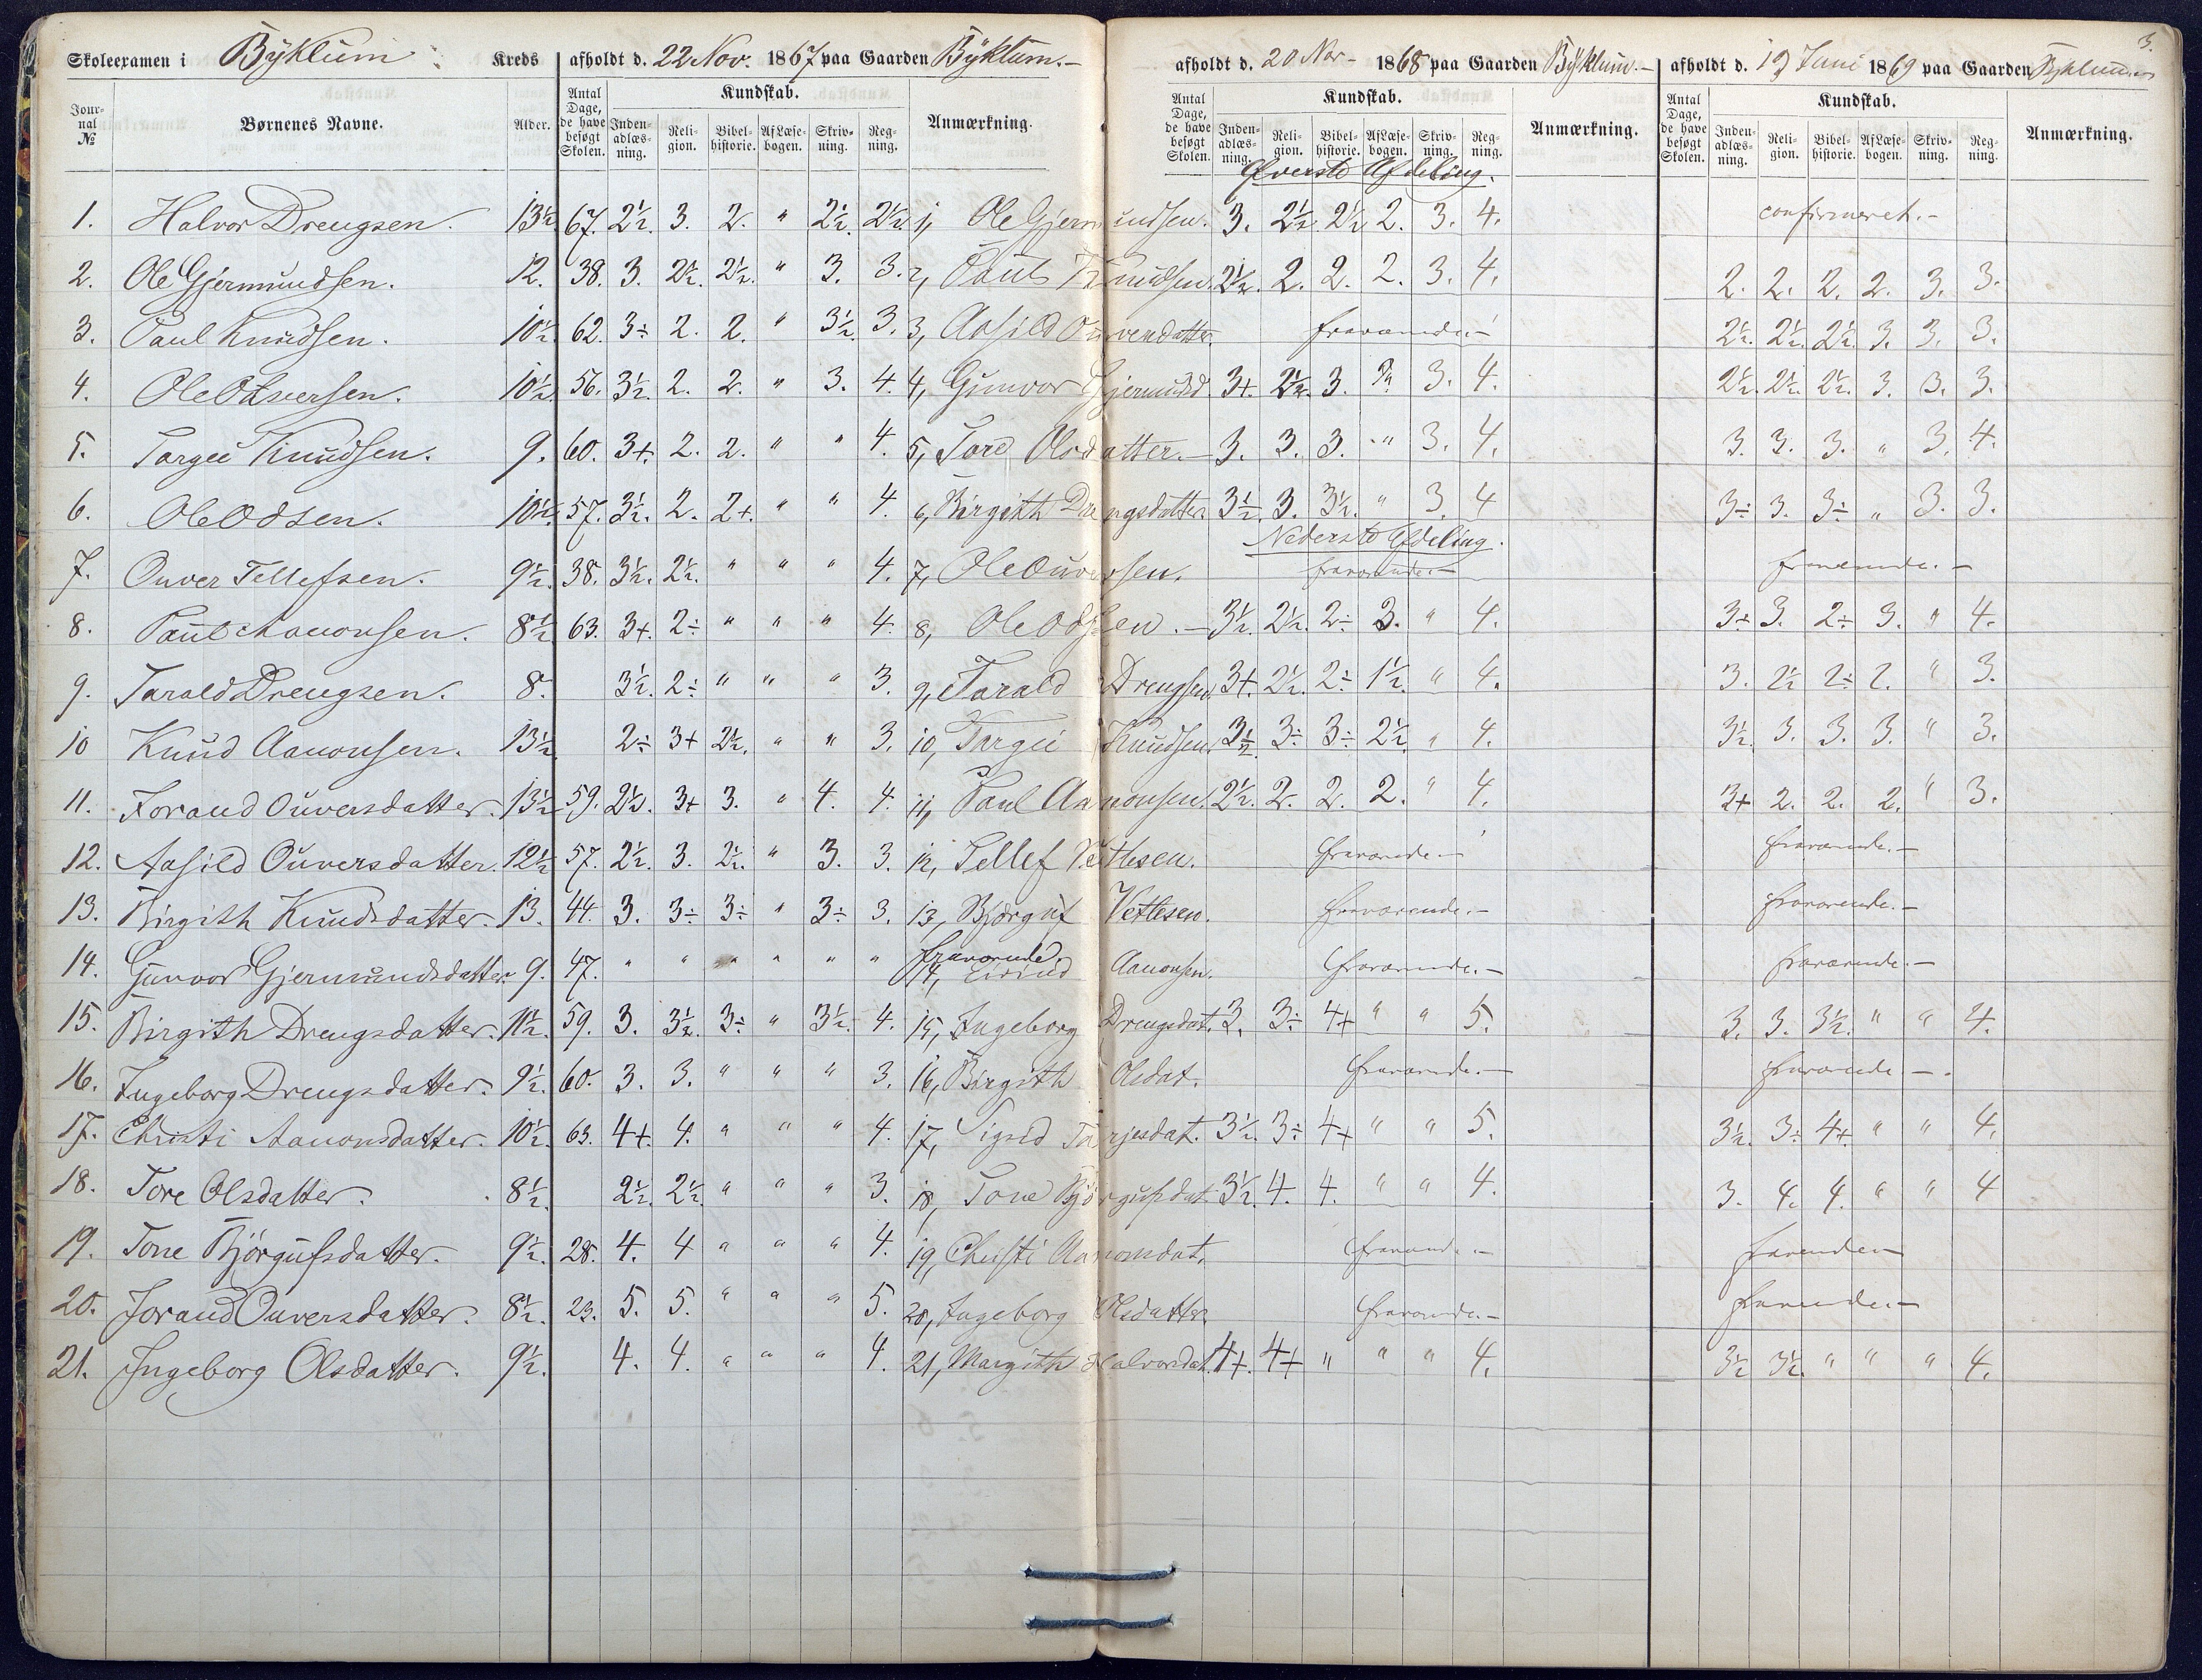 Skoleexamen i Byklum Kreds afholdt d. 22 Nov. 1867 paa Gaarden Byklum.- afholdt d. 20 Nov- 1868 paa Gaarden Byklum.- afholdt d. 19 Juni 1869 paa Gaarden Byklum 3.
Journal № Børnenes Navne. Alder. Antal Dage, de have besøgt Skolen. Kundskab. Indenadlæsning. Religion. Bibelhistorie. Af Læsebogen. Skrivning. Regning. Anmærkning. Antal Dage, de have besøgt Skolen. Kundskab. Indenadlæsning. Religion. Bibelhistorie. Af Læsebogen. Skrivning. Regning. Anmærkning. Antal Dage, de have besøgt Skolen. Kundskab. Indenadlæsning. Religion. Bibelhistorie. Af Læsebogen. Skrivning. Regning. Anmærkning.
Øverste Afdeling.
1. Halvor Drengsen. 13½ 67. 2½. 3. 2. " 2½. 2½. 1, Ole Gjermundsen. 3. 2½. 2½ 2. 3. 4. confirmeret.-
2. Ole Gjermundsen. 12. 38. 3. 2½. 2½. " 3. 3. 2, Paul Knudsen. 2½. 2. 2. 2. 3. 4. 2. 2. 2. 2. 3. 3.
3. Paul Knudsen. 10½. 62. 3÷ 2. 2. " 3½. 3. 3, Aasild Ouversdatter. fraværende.- 2½. 2½. 2½. 3. 3. 3.
4. Ole Ouversen. 10½. 56. 3½. 2. 2. " 3. 4. 4, Gunvor Gjermundsd. 3+. 2½. 3. 3. 4. 2½. 2½. 2½. 3. 3. 3.
5. Targei Knudsen. 9. 60. 3+. 2. 2. " " 4. 5, Tore Olsdatter.- 3. 3. 3. " 3. 4. 3. 3. 3. " 3. 4.
6. Ole Odsen. 10½. 57. 3½. 2. 2+. " " 4. 6, Birgith Drengsdatter 3½. 3. 3½. " 3. 4 3÷ 3. 3÷ " 3. 3.
Nederste Afdeling.
7. Ouver Tellefsen. 9½. 38. 3½. 2½. " " " 4. 7, Ole Ouversen. fraværende.- fraværende.-
8. Paul Aanonsen. 8½ 63. 3+. 2÷ " " " 4. 8, Ole Odsen.- 3½. 2½. 2÷ 3. " 4. 3÷ 3. 2÷ 3. " 4.
9. Tarald Drengsen. 8. 3½. 2÷ " " " 3. 9, Tarald Drengsen 3+. 2½. 2÷ 1½. " 4. 3. 2½ 2÷ 2. " 3.
10 Knud Aanonsen. 13½. 2÷ 3+ 2½. " " 3. 10, Targei Knudsen 3½ 3÷ 3÷ 2½. " 4. 3½. 3. 3. 3. " 3.
11. Jorand Ouversdatter. 13½ 59. 2½. 3+ 3. " 4. 4. 11, Paul Aanonsen. 2½. 2. 2. 2. " 4. 3+ 2. 2. 2. " 3.
12. Aasild Ouversdatter. 12½ 57. 2½. 3. 2½. " 3. 3. 12, Tellef Vetlesen. fraværende.- fraværende.-
13. Birgith Knudsdatter. 13. 44. 3. 3÷ 3÷ " 3÷ 3. 13, Bjørguf Vetlesen. fraværende.- fraværende.-
14. Gunvor Gjermundsdatter. 9. 47. " " " " " " fraværende 14, Eivind Aanonsen. fraværende.- fraværende.-
15. Birgith Drengsdatter. 11½. 59. 3. 3½. 3÷ " 3½. 4. 15, Ingeborg Drengsdat. 3. 3÷ 4+ " " 5. 3. 3. 3½. " " 4.
16. Ingeborg Drengsdatter. 9½. 60. 3. 3. " " " 3. 16, Birgith Olsdat. fraværende.- fraværende-.
17. Christi Aanonsdatter. 10½. 63. 4+. 4. " " " 4. 17, Sigrid Tarjesdat. 3½. 3÷ 4+ " " 5. 3½. 3÷ 4+. " " 4.
18. Tore Olsdatter. 8½. 2½. 2½. " " " 3. 18, Tone Bjørgufsdat. 3½. 4. 4. " " 4. 3. 4. 4. " " 4
19. Tone Bjørgufsdatter. 9½. 28. 4. 4 " " " 4. 19, Christi Aanonsdat. fraværende.- fraværende-
20. Jorand Ouversdatter. 8½. 23. 5. 5. " " " 5. 20, Ingeborg Olsdatter. fraværende.- fraværende.-
21. Ingeborg Olsdatter. 9½. 4. 4. " " " 4. 21, Margith Halvorsdat. 4+. 4+ " " " 4. 3½ 3½. " " " 4.